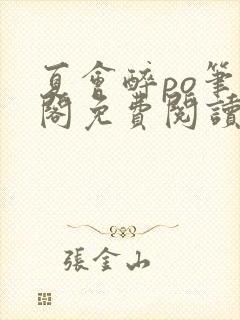 夏會醉po筆
閣免費閱讀
張金山